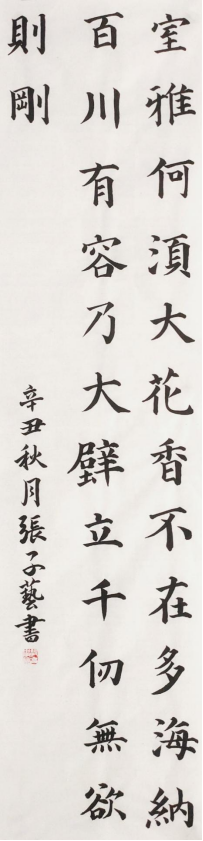 室雅何須大花香不在多海納
百川有容乃大壁立千仞無欲
則剛
辛丑秋月張子藝書